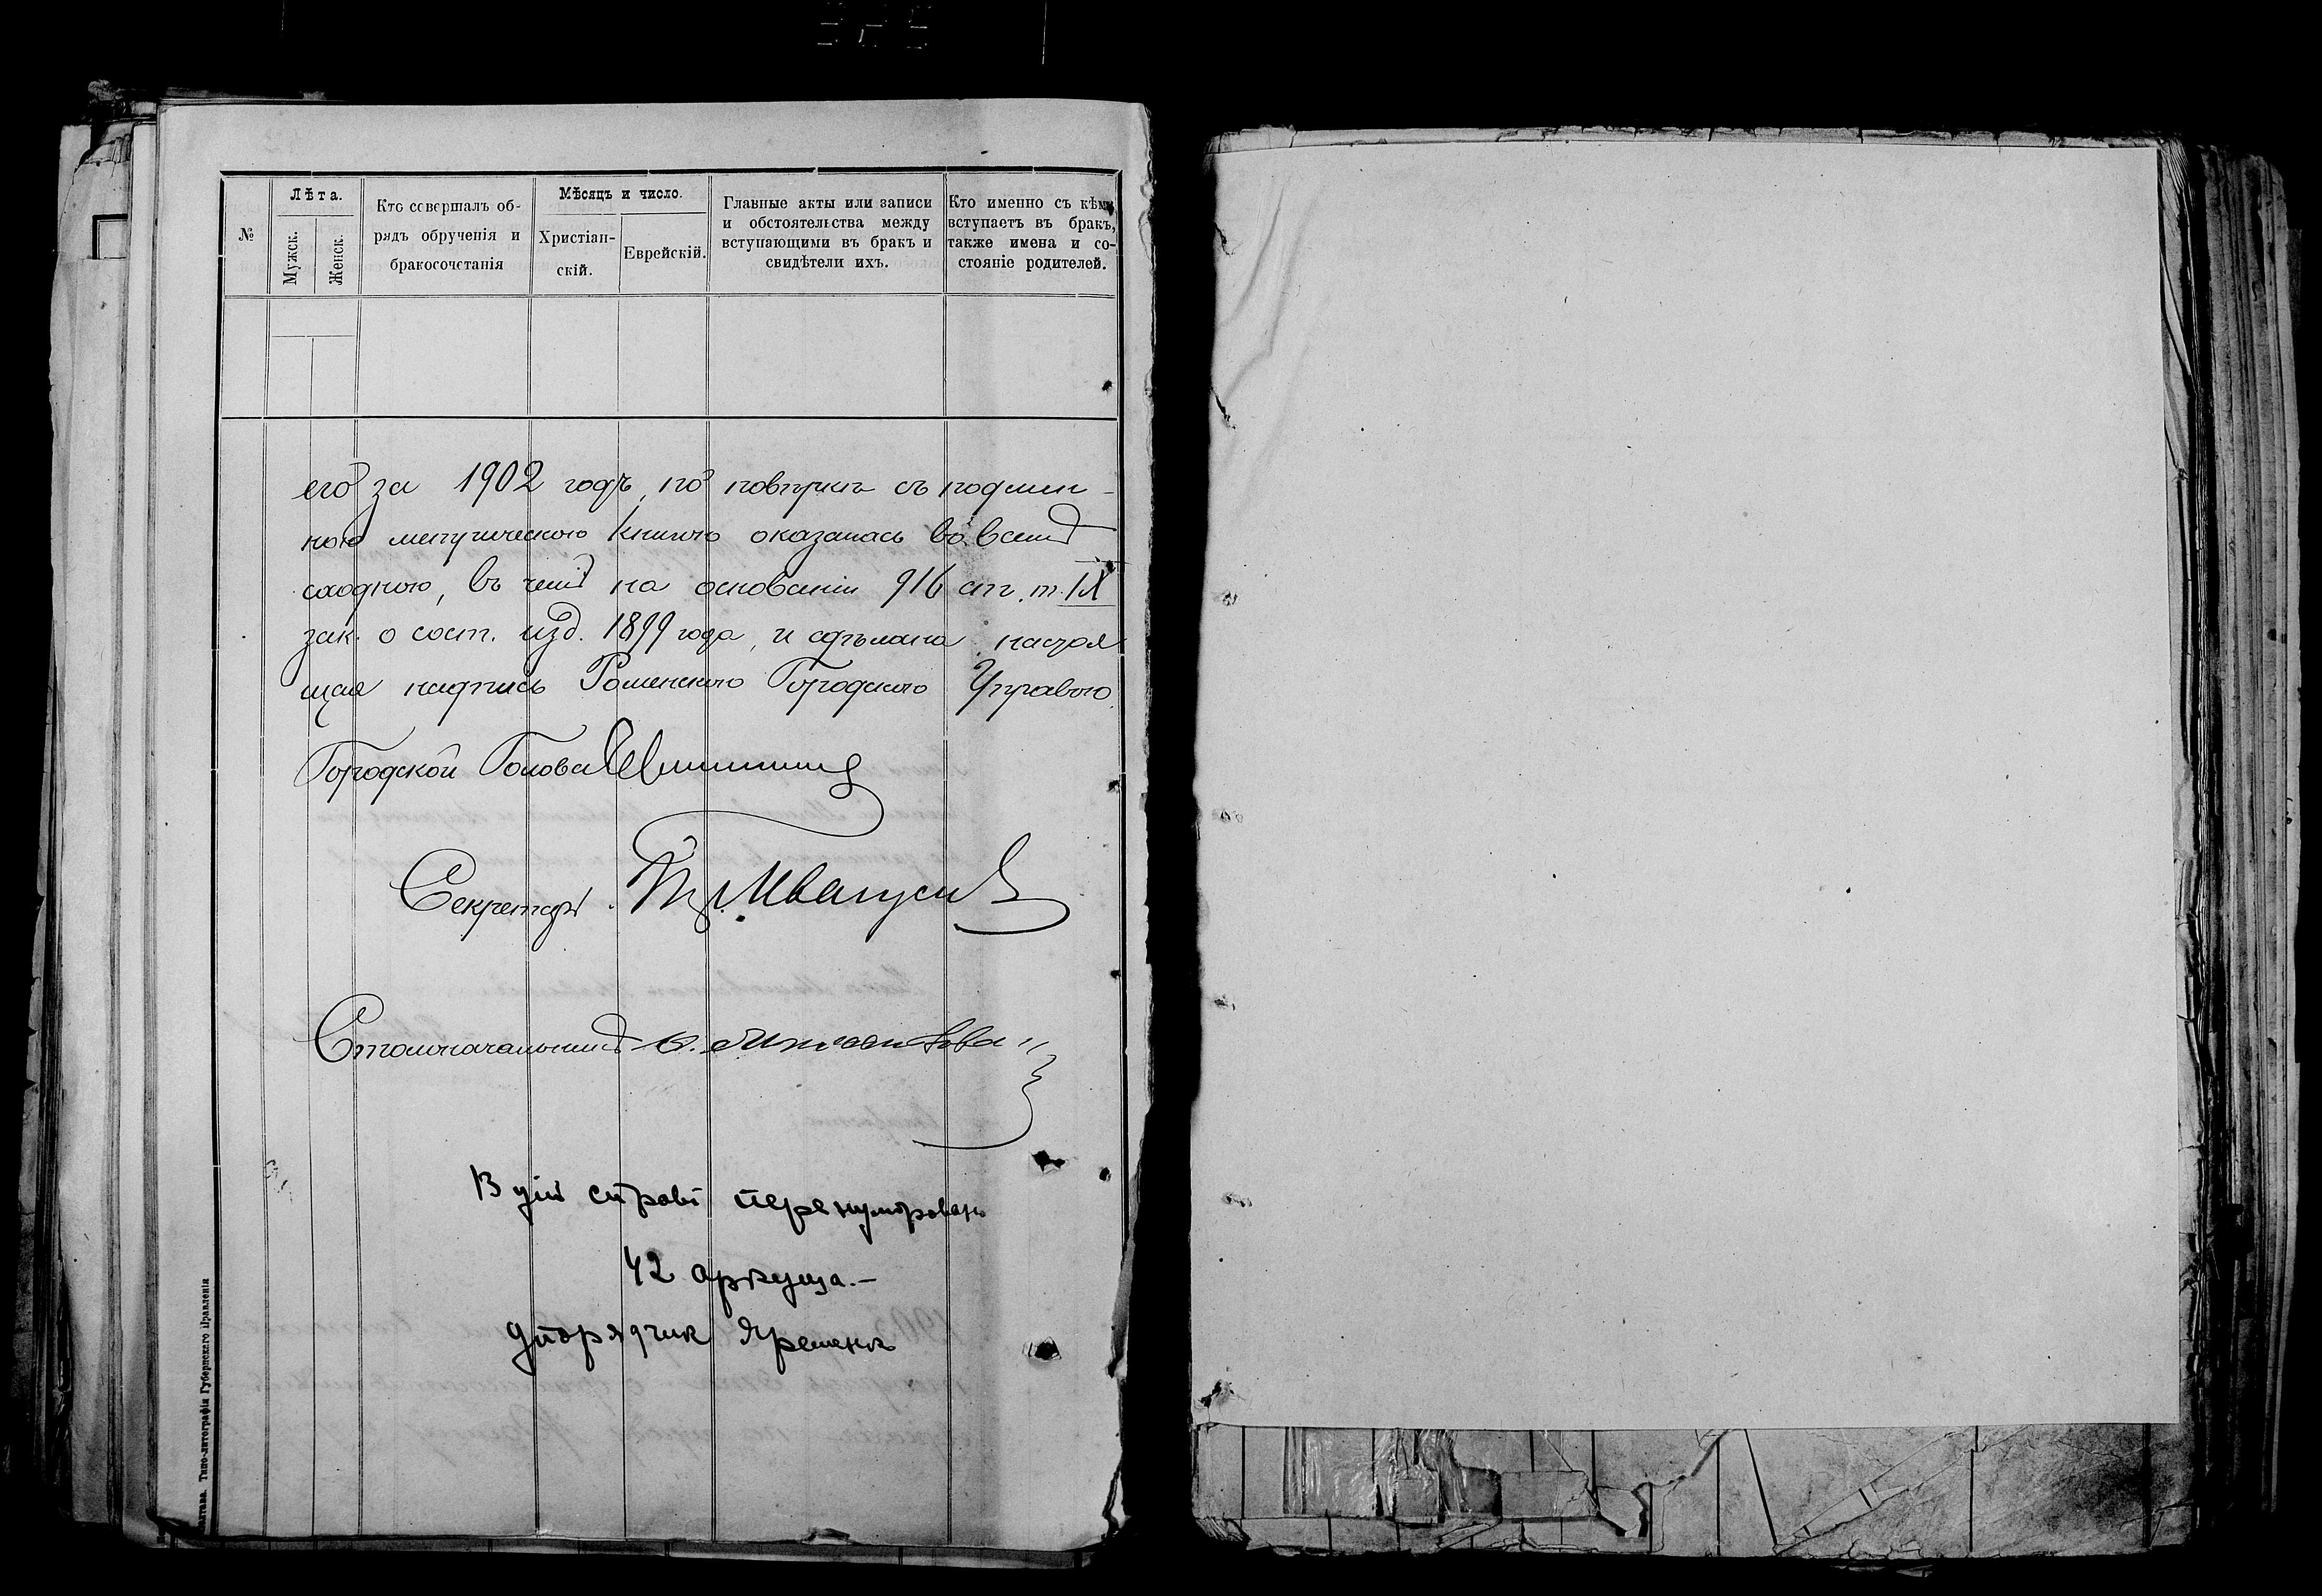 №
Лѣта.
Мужск.
Женск.
Кто совершалъ об-
рядъ обрученія и
бракосочетанія
Мѣсяцъ и число.
Христіан-
скій.
Еврейскій.
Главные акты или записи
и обстоятельства между
вступающими въ бракъ и
свидѣтели ихъ.
Кто именно съ кѣмъ
вступаетъ въ бракъ,
также имена и со-
стояніе родителей.
его за 1902 годъ, по повѣркѣ съ подлин-
ною метрическою книгою оказалась во всемъ
сходною, въ чемъ на основаніи 916 ст. т. IX
зак. о сост. изд. 1899 года, и сдѣлана настоя
щая надпись Роменскою Городскою Управою.
Городской Голова
Секретарь
Столоначальникъ
В цій справі перенумеровано
42 аркуша.-
Упорядчик Яременко
Полтава. Типо-литографія Губернскаго Правленія